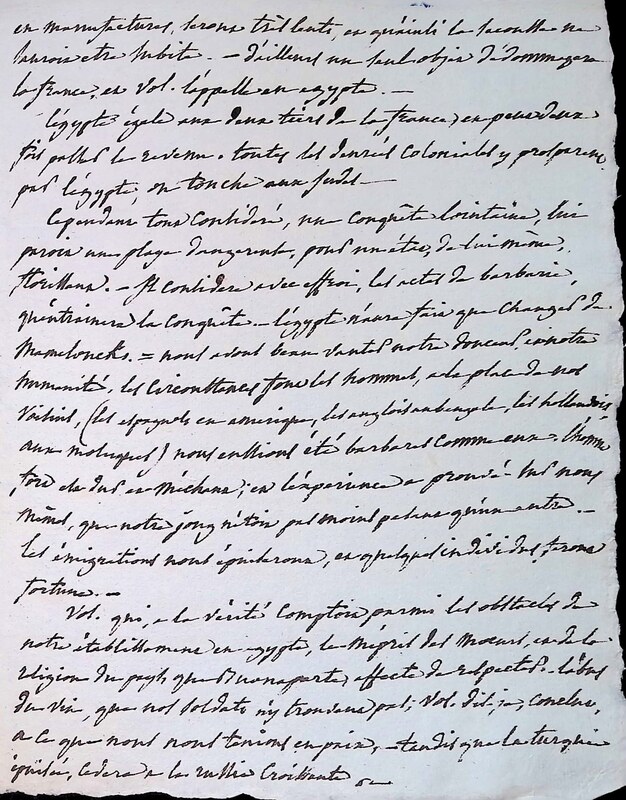 en manufactures, seront très lents, et qu'ainsi la secousse ne
sauroit etre subite. — d'ailleurs un seul objet dédommagera
la france, et Vol. l'appelle en egypte. —
l'égypte égale aux deux tiers de la france, en peut deux
fois passer le revenu. toutes les denrées Coloniales y prosperent,
par l'égypte, on touche aux indes —
Cependant tout Considéré, une Conquête lointaine, lui
paroit une plage dangereuse, pour un état, de lui même,
florissant. — Il Considere avec effroi, les actes de barbarie,
qu'entrainera la Conquête. — l'égypte n'aura fait que changer de
Mamelouks. = nous avons beau vanter notre douceur, et notre
humanité, les Circonstances font les hommes, à la place de nos
Voisins, (les espagnols en amerique, les anglois au bengale, les hollandois
aux moluques) nous eussions été barbares comme eux. l'homme
fort est dur et méchant; et l'expérience a prouvé sur nous
mêmes, que notre joug n'étoit pas moins pesant qu'un autre. —
les émigrations nous épuiseront, et quelques individus, feront
fortune. —
Vol. qui, à la vérité Comptoit parmi les obstacles de
notre établissement en egypte, le mépris des Mœurs, et de la
religion du pays que Buonaparte, affecte de respecter. l'abus
du vin, que nos soldats n'y trouvent pas; Vol. dis-je, conclut,
à ce que nous nous tenions en paix, — tandis que la turquie
épuisée, cedera à la russie Croissante